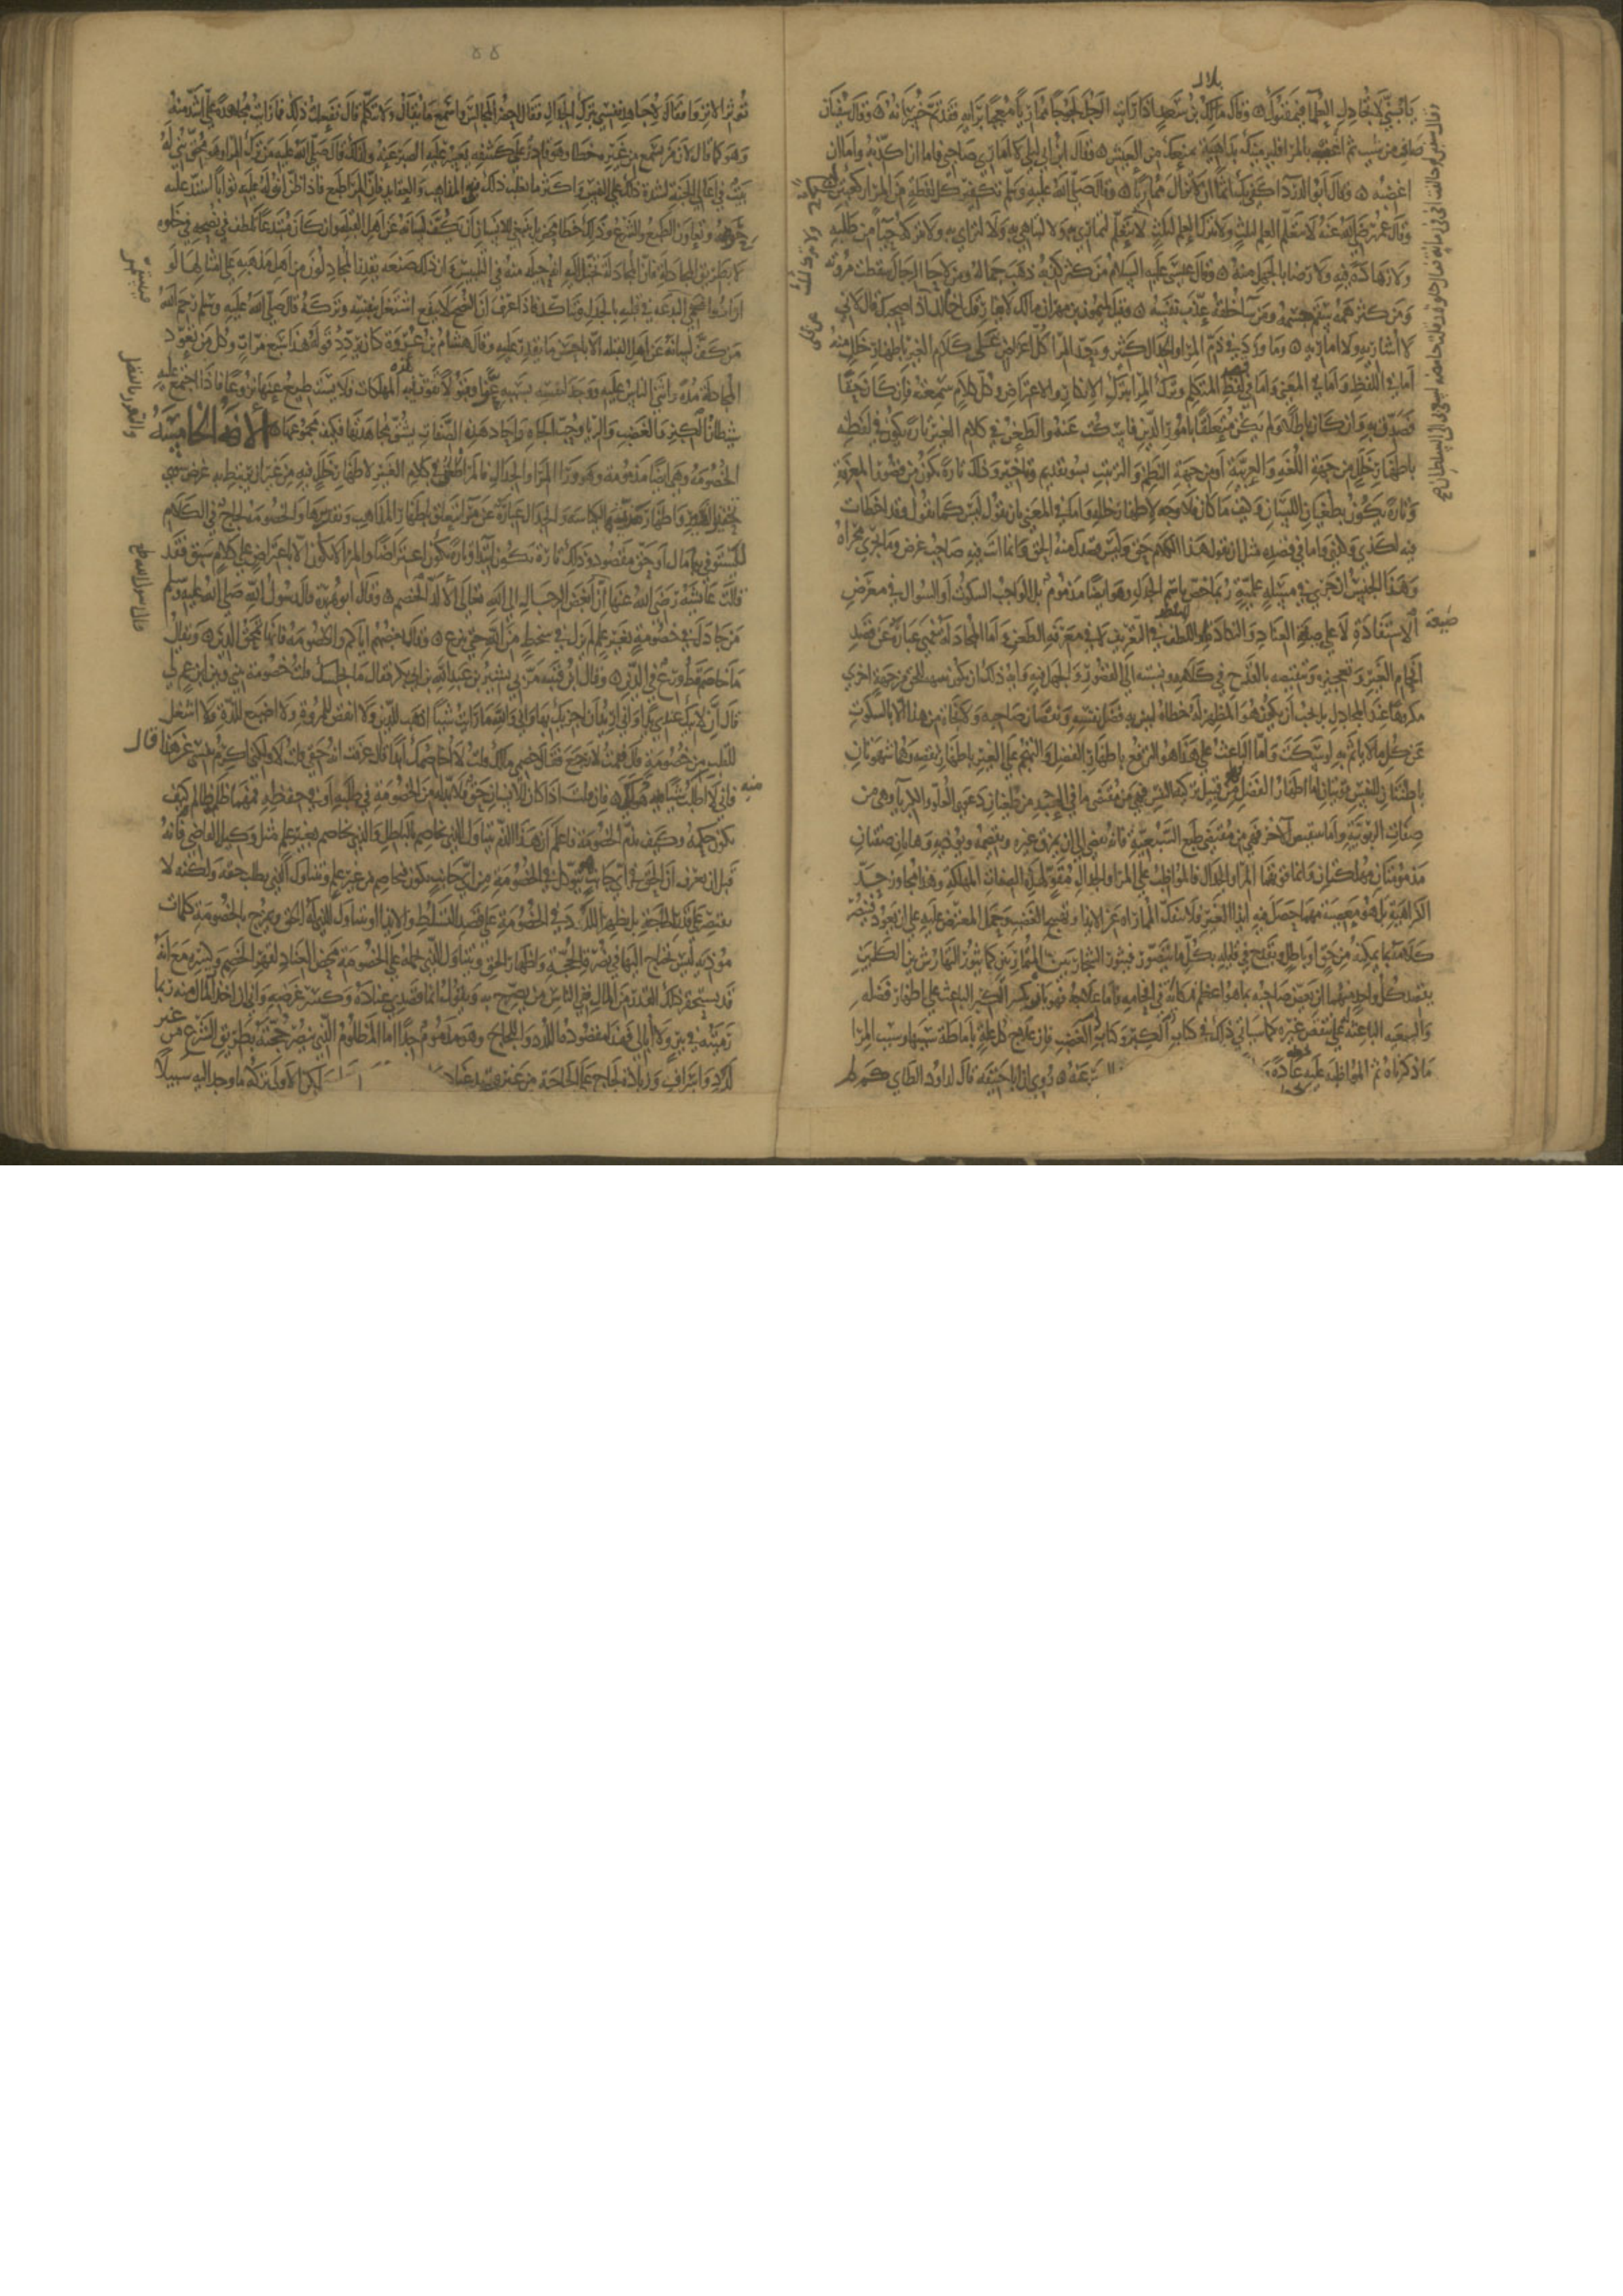 يا بني لا تجادل العلماء فيمقتوك ه وقال مالك بن سعد اذا رايت الرجل لجوجا مماريا معجبا برايه فقد تم خسرانه ه وقال سفيان
صاف من شئت ثم اغضبه بالمرا فليرمينك بداهية تمنعك من العيش ه وقال ابن ابي ليلى لا اماري صاحبي فاما ان اكذبه واما ان
اغضبه ه وقال ابو الدردا كفى بك اثما ان لا تزال مماريا ه وقال صلى الله عليه وسلم تكفير كل لحا ركعتين
وقال عمر رضي الله عنه لا تتعلم العلم لثلث ولا تترك العلم لثلث لا تتعلم لتماري به ولا لتباهي به ولا لترائي به ولا تتركه حيا من طلبه
ولا زهادة فيه ولا رضا بالجهل منه ه وقال عيسى عليه السلام من كثر كذبه ذهب جماله ومن لاحا الرجال سقطت مروته
ومن كثر همه سقم جسمه ومن سا خلقه عذب نفسه ه وقيل لميمون بن مهران مالك لا تفارق اخا لك قال لاني
لا اشاريه ولا اماريه ه وما ورد في ذم المرا والجدال اكثر وحد المرا كل اعتراض على كلام الغير باظهار خلل فيه
اما في اللفظ واما في المعنى واما في قصد المتكلم وترك المرا بترك الانكار والاعتراض وكل كلام سمعته فان كان حقا
فصدق به وان كان باطلا ولم يكن متعلقا بامور الدين فاسكت عنه والطعن في كلام الغير تارة يكون في لفظه
باظهار خلل من جهة اللغة او العربية او من جهة النظم والترتيب بسو تقديم وتاخير وذلك تارة يكون من قصور المعرفة
وتارة يكون بطغيان اللسان وكيف ما كان فلا وجه لاظهار خلله واما في المعنى بان يقول ليس كما تقول وقد اخطات
فيه لكذى وكذى واما في قصده مثل ان يقول هذا الكلام حق ولكن ليس قصدك منه الحق وانما انت فيه صاحب غرض وما يجري مجراه
وهذا الجنس ان جرى في مسئلة علمية ربما خص باسم الجدل وهو ايضا مذموم بل الواجب السكوت او السوال في معرض
الاستفادة لا على صيغة العناد والنكادة او التلطف في التعريف لا في معرض الطعن ه اما المجادلة فهي عبارة عن قصد
افحام الغير وتعجيزه وتنقيصه بالقدح في كلامه ونسبته الى القصور والجهل فيه واية ذلك ان يكون تنبيهه للحق من جهة اخرى
مكروها عند المجادل بل يحب ان يكون هو المظهر له خطاه ليبين به فضل نفسه ونقصان صاحبه ولا نجاة من هذا الا بالسكوت
عن كل ما لا ياثم به لو سكت واما الباعث على هذا فهو الترفع باظهار الفضل والتهجم على الغير باظهار نقصه وهما شهوتان
باطنتان للنفس قويتان اما اظهار الفضل فهو من قبيل تزكية النفس وهي من مقتضى ما في العبد من طغيان دعوى العلو والكبريا وهي من
صفات الربوبية واما تنقيص الاخر فهو من مقتضى طبع السبعية فانه يقتضي ان يمزق غيره ويقصمه ويوذيه وهاتان صفتان
مذمومتان مهلكتان وانما قوتهما المرا والجدال فالمواظب على المرا والجدال مقو لهذه الصفات المهلكة وهذا مجاوز حد
الكراهية بل هو معصية مهما حصل فيه ايذا الغير فلا تنفك المماراة عن الايذا وتهييج الغضب وحمل المعترض عليه على ان يعود فينصر
كلامه بما يمكنه من حق او باطل ويقدح في قايله بكل ما يتصور فيثور الشجار بين المتماريين كما يثور الهراش بين الكلبين
يقصد كل واحد منهما ان يعض صاحبه بما هو اعظم نكاية في افحامه واما علاجه فهو بان يكسر الكبر الباعث على اظهار فضله
والسبعية الباعثة على تنقيص غيره كما سياتي ذلك في كتاب الكبر وكتاب الغضب فان علاج كل علة باماطة سببها وسبب المرا
ما ذكرناه ثم المواظبة عليه عادة
عنه ه روي ان ابا حنيفة قال لداود الطاي لم
اثرت الانزوا فقال لاجاهد نفسي بترك الجدال فقال احضر المجالس واسمع ما يقال ولا تتكلم قال ففعلت ذلك فما رايت مجاهدة علي اشد منه
وهو كما قال لان من سمع من غيره خطا وهو قادر على كشفه يعسر عليه الصبر عنه ولذلك قال صلى الله عليه من ترك المرا وهو محق بني له
بيت في اعلى الجنة لشدة ذلك على النفس واكثر ما يغلب ذلك في المذاهب والعقايد فان المرا طبع فاذا ظن ان له عليه ثوابا اشتد عليه
حرصه وتعاون الطبع والشرع وذلك خطا محض بل ينبغي للانسان ان يكف لسانه عن اهل القبلة وان كان مبتدعا تلطف في نصحه في خلوة
لا بطريق المجادلة فان المجادلة تخيل اليه انه حيلة منه في التلبيس وان ذلك صنعة يقدر المجادلون من اهل مذهبه على امثالها لو
ارادوا فتستمر البدعة في قلبه بالجدل وتتاكد فاذا عرف ان النصح لا ينفع اشتغل بنفسه وتركه قال صلى الله عليه وسلم رحم الله
من كف لسانه عن اهل القبلة الا باحسن ما يقدر عليه وقال هشام بن عروة كان يردد قوله هذا سبع مرات وكل من تعود
المجادلة مدة واثنى الناس عليه ووجد لنفسه بسببه عزا وقبولا قويت فيه المهلكات فلا يستطيع عنها نزوعا فاذا اجتمع عليه
سلطان الكبر والغضب والريا وحب الجاه واحاد هذه الصفات يشق مجاهدتها فكيف مجموعها ه الافة الخامسة
الخصومة وهي ايضا مذمومة وهو ورا المرا والجدال فالمرا طعن في كلام الغير لاظهار خلل فيه من غير ان يرتبط به غرض سوى
تحقير الغير واظهار مزية الكياسة والجدال عبارة عن مرا يتعلق باظهار المذاهب وتقريرها والخصومة لجاج في الكلام
ليستوفي بها مال او حق مقصود وذلك تارة يكون ابتدا وتارة يكون اعتراضا والمرا لا يكون الا باعتراض على كلام سبق فقد
قالت عائشة رضي الله عنها ان ابغض الرجال الى الله تعالى الالد الخصم ه وقال ابو هريرة قال رسول الله صلى الله عليه وسلم
من جادل في خصومة بغير علم لم يزل في سخط من الله حتى ينزع ه وقال بعضهم اياكم والخصومة فانها تمحق الدين ه ويقال
ما خاصم قط ورع في الدين ه وقال ابن قتيبة مر بي بشير بن عبد الله بن ابي بكرة فقال ما يجلسك قلت خصومة بيني وبين ابن عم لي
قال ان لابيك عندي يدا واني اريد ان اجزيك بها واني والله ما رايت شيئا اذهب للدين ولا انقص للمروة ولا اضيع للذة ولا اشغل
للقلب من خصومة قال فقمت لارجع فقال خصمي مالك قلت لا اخاصمك ابدا قال عرفت انه حقي قلت لا ولكني اكرم نفسي عن هذا قال
فاني لا اطلب شيا منه هو لك ه فان قلت اذا كان للانسان حق فلا بد له من الخصومة في طلبه او في حفظه مهما ظلمه ظالم فكيف
يكون حكمه وكيف تذم الخصومة فاعلم ان هذا الذم يتناول الذي يخاصم بالباطل والذي يخاصم بغير علم مثل وكيل القاضي فانه
قبل ان يعرف ان الحق في اي جانب يتوكل في الخصومة من اي جانب يكون فيخاصم من غير علم ويتناول الذي يطلب حقه ولكنه لا
يقتصر على قدر الحاجة بل يظهر اللدد في الخصومة على قصد التسلط والايذا او يتناول الذي له الحق ويمزج بالخصومة كلمات
موذية ليس يحتاج اليها في نصرة الحجة واظهار الحق ويتناول الذي يحمله على الخصومة محض العناد لقهر الخصم وكسره مع انه
قد يستحقر ذلك القدر من المال وفي الناس من يصرح به ويقول انما قصدي عناده وكسر غرضه واني ان اخذت المال منه ربما
رميته في بير ولا ابالي فهذا مقصوده اللدد واللجاج وهو مذموم جدا اما المظلوم الذي ينصر حجته بطريق الشرع من غير
لدد واسراف وزيادة لجاج على الحاجة من غير قصد عناد
لكن الاولى تركه ما وجد اليه سبيلا